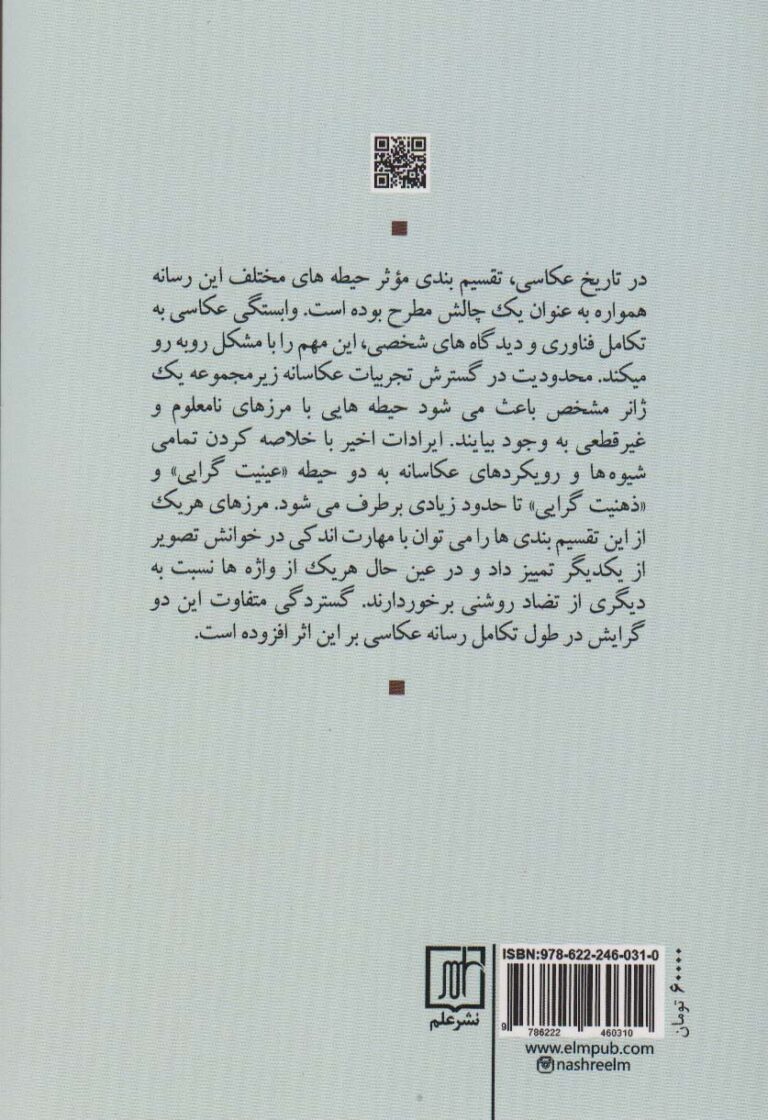 در تاریخ عکاسی، تقسیم بندی مؤثر حیطه های مختلف این رسانه
همواره به عنوان یک چالش مطرح بوده است. وابستگی عکاسی به
تکامل فناوری و دیدگاه های شخصی، این مهم را با مشکل روبه رو
میکند. محدودیت در گسترش تجربیات عکاسانه زیرمجموعه یک
ژانر مشخص باعث می شود حیطه هایی با مرزهای نامعلوم و
غیرقطعی به وجود بیایند. ایرادات اخیر با خلاصه کردن تمامی
شیوه‌ها و رویکردهای عکاسانه به دو حیطه «عینیت گرایی» و
«ذهنیت گرایی» تا حدود زیادی برطرف می شود. مرزهای هریک
از این تقسیم بندی ها را می توان با مهارت اندکی در خوانش تصویر
از یکدیگر تمییز داد و در عین حال هریک از واژه ها نسبت به
دیگری از تضاد روشنی برخوردارند. گستردگی متفاوت این دو
گرایش در طول تکامل رسانه عکاسی بر این اثر افزوده است.
ISBN:978-622-246-031-0
9 786222 460310
۶۰۰۰۰ تومان
علم
نشر علم
www.elmpub.com
nashreelm